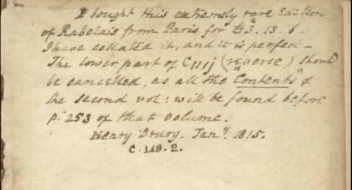 I bought this extremely rare Edition
of Rabelais from Paris for £3. 13. 6 -
I have collated it, and it is perfect -
The lower part of Ciiij (reverse) should
be cancelled, as all the "Contents" of
the second vol: will be found before
p. 253 of that volume.
Henry Drury. Jany. 1815.
C. 148. 2.